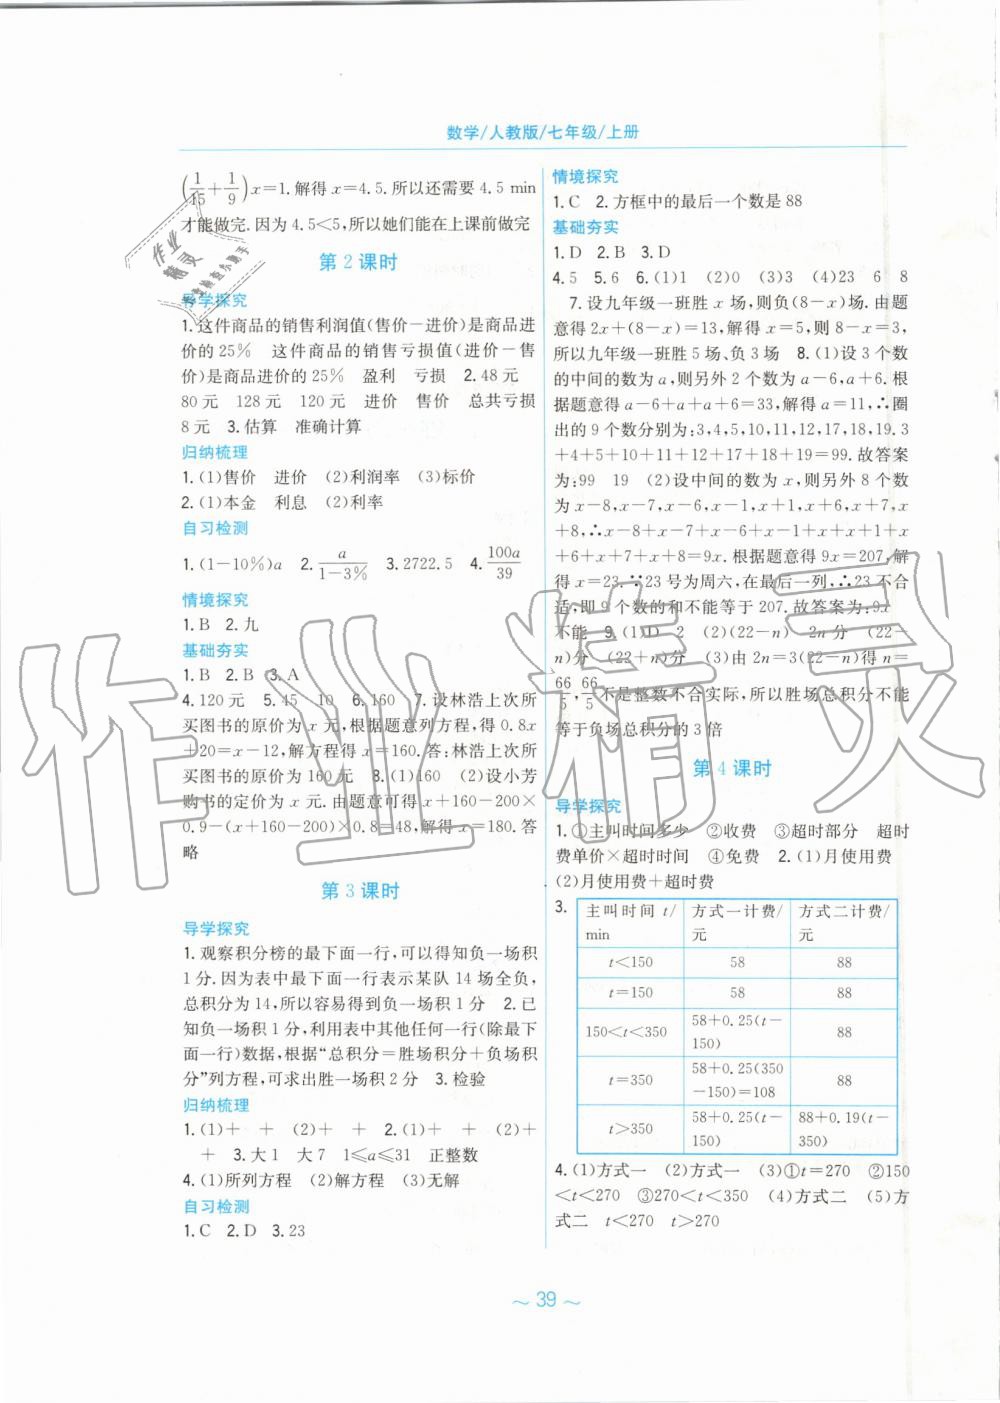 数学/人教版/七年级/上册
(1/15+1/9)x=1.解得x=4.5.所以还需要4.5 min
才能做完.因为4.5<5,所以她们能在上课前做完
第2课时
导学探究
1.这件商品的销售利润值(售价-进价)是商品进
价的25%　这件商品的销售亏损值(进价-售
价)是商品进价的25%　盈利　亏损　2.48元
80元　128元　120元　进价　售价　总共亏损
8元　3.估算　准确计算
归纳梳理
1.(1)售价　进价　(2)利润率　(3)标价
2.(1)本金　利息　(2)利率
自习检测
1.(1-10%)a　2.a/(1-3%)　3.2722.5　4.100a/39
情境探究
1.B　2.九
基础夯实
1.B　2.B　3.A
4.120元　5.45　10　6.160　7.设林浩上次所
买图书的原价为x元,根据题意列方程,得0.8x
+20=x-12,解方程得x=160.答:林浩上次所
买图书的原价为160元　8.(1)160　(2)设小芳
购书的定价为x元.由题意可得(x+160-200)×
0.9-(x+160-200)×0.8=48,解得x=180.答
略
第3课时
导学探究
1.观察积分榜的最下面一行,可以得知负一场积
1分.因为表中最下面一行表示某队14场全负,
总积分为14,所以容易得到负一场积1分　2.已
知负一场积1分,利用表中其他任何一行(除最下
面一行)数据,根据“总积分=胜场积分+负场积
分”列方程,可求出胜一场积2分　3.检验
归纳梳理
1.(1)+　+　(2)+　+　2.(1)+　+　(2)+
+　3.大1　大7　1≤a≤31　正整数
4.(1)所列方程　(2)解方程　(3)无解
自习检测
1.C　2.D　3.23
情境探究
1.C　2.方框中的最后一个数是88
基础夯实
1.D　2.B　3.D
4.5　5.6　6.(1)1　(2)0　(3)3　(4)23　6　8
7.设九年级一班胜x场,则负(8-x)场.由题
意得2x+(8-x)=13,解得x=5,则8-x=3,
所以九年级一班胜5场、负3场　8.(1)设3个数
的中间的数为a,则另外2个数为a-6,a+6.根
据题意得a-6+a+a+6=33,解得a=11,∴圈
出的9个数分别为:3,4,5,10,11,12,17,18,19.3
+4+5+10+11+12+17+18+19=99.故答案
为:99　19　(2)设中间的数为x,则另外8个数
为x-8,x-7,x-6,x-1,x+1,x+6,x+7,x
+8,∴x-8+x-7+x-6+x-1+x+x+1+x
+6+x+7+x+8=9x.根据题意得9x=207,解
得x=23.∵23号为周六,在最后一列,∴23不合
适,即9个数的和不能等于207.故答案为:9x
不能　9.(1)D　2　(2)(22-n)　2n分　(22-
n)分　(22+n)分　(3)由2n=3(22-n)得n=
66/5,66/5不是整数不合实际,所以胜场总积分不能
等于负场总积分的3倍
第4课时
导学探究
1.①主叫时间多少　②收费　③超时部分　超时
费单价×超时时间　④免费　2.(1)月使用费
(2)月使用费+超时费
3.
主叫时间t/min　方式一计费/元　方式二计费/元
t<150　58　88
t=150　58　88
150<t<350　58+0.25(t-150)　88
t=350　58+0.25(350-150)=108　88
t>350　58+0.25(t-150)　88+0.19(t-350)
4.(1)方式一　(2)方式一　(3)①t=270　②150
<t<270　③270<t<350　(4)方式二　(5)方
式二　t<270　t>270
~ 39 ~
作业精灵